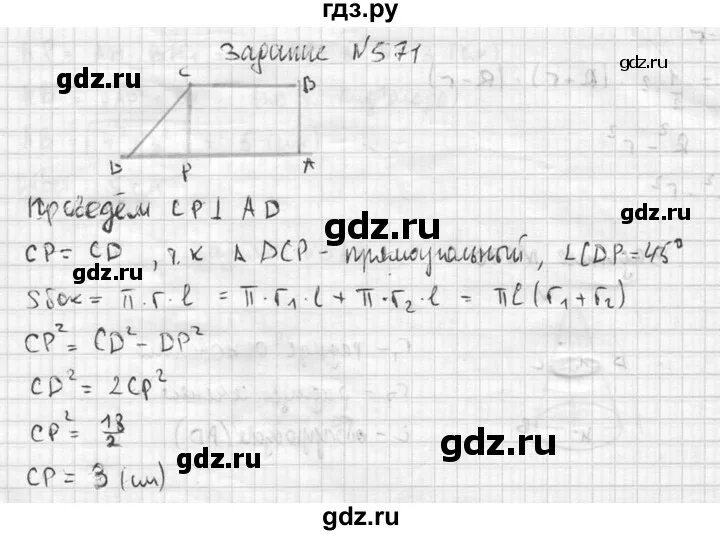 гдз.ру
Задание №571
gdz.ru
gdz.ru
C B
D P A
Проведём CP ⊥ AD
gdz.ru
CP = CD, т.к Δ DCP - прямоугольный, ∠CDP = 45°
gdz.ru
Sбок = π·r·l = π·r₁·l + π·r₂·l = πl(r₁+r₂)
CP² = CD² - DP²
CD² = 2CP²
gdz.ru
CP² = 18/2
gdz.ru
gdz.ru
CP = 3 (см)
gdz.ru